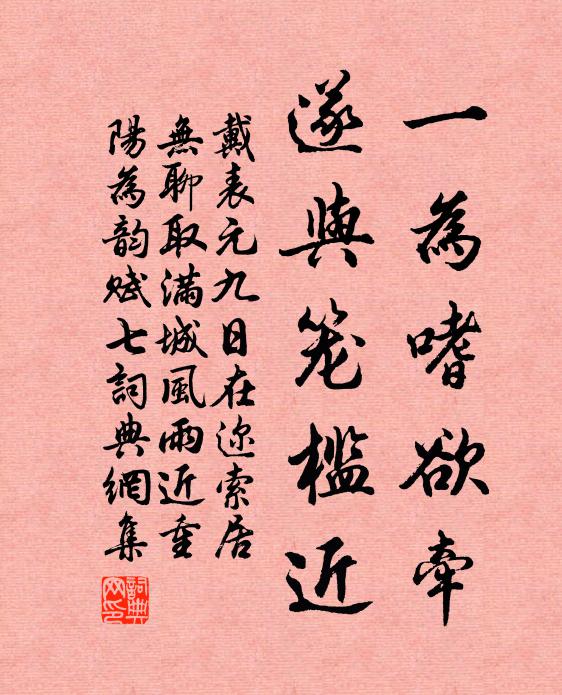 一為嗜欲牽
遂與笼檻近
戴表元九日在迩索居
無聊取滿城風雨近重
陽為韵赋七詞典網集
詞典網印